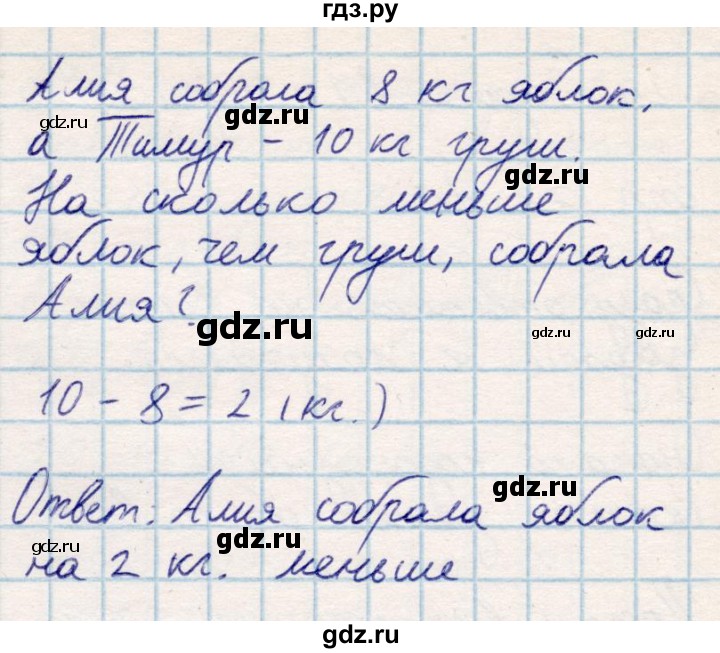 гдз.ру
Алия собрала 8 кг яблок,
gdz.ru
gdz.ru
а Тимур - 10 кг груш.
gdz.ru
На сколько меньше
яблок, чем груш, собрала
Алия?
gdz.ru
gdz.ru
gdz.ru
10 - 8 = 2 (кг.)
gdz.ru
Ответ: Алия собрала яблок
gdz.ru
gdz.ru
на 2 кг. меньше
gdz.ru